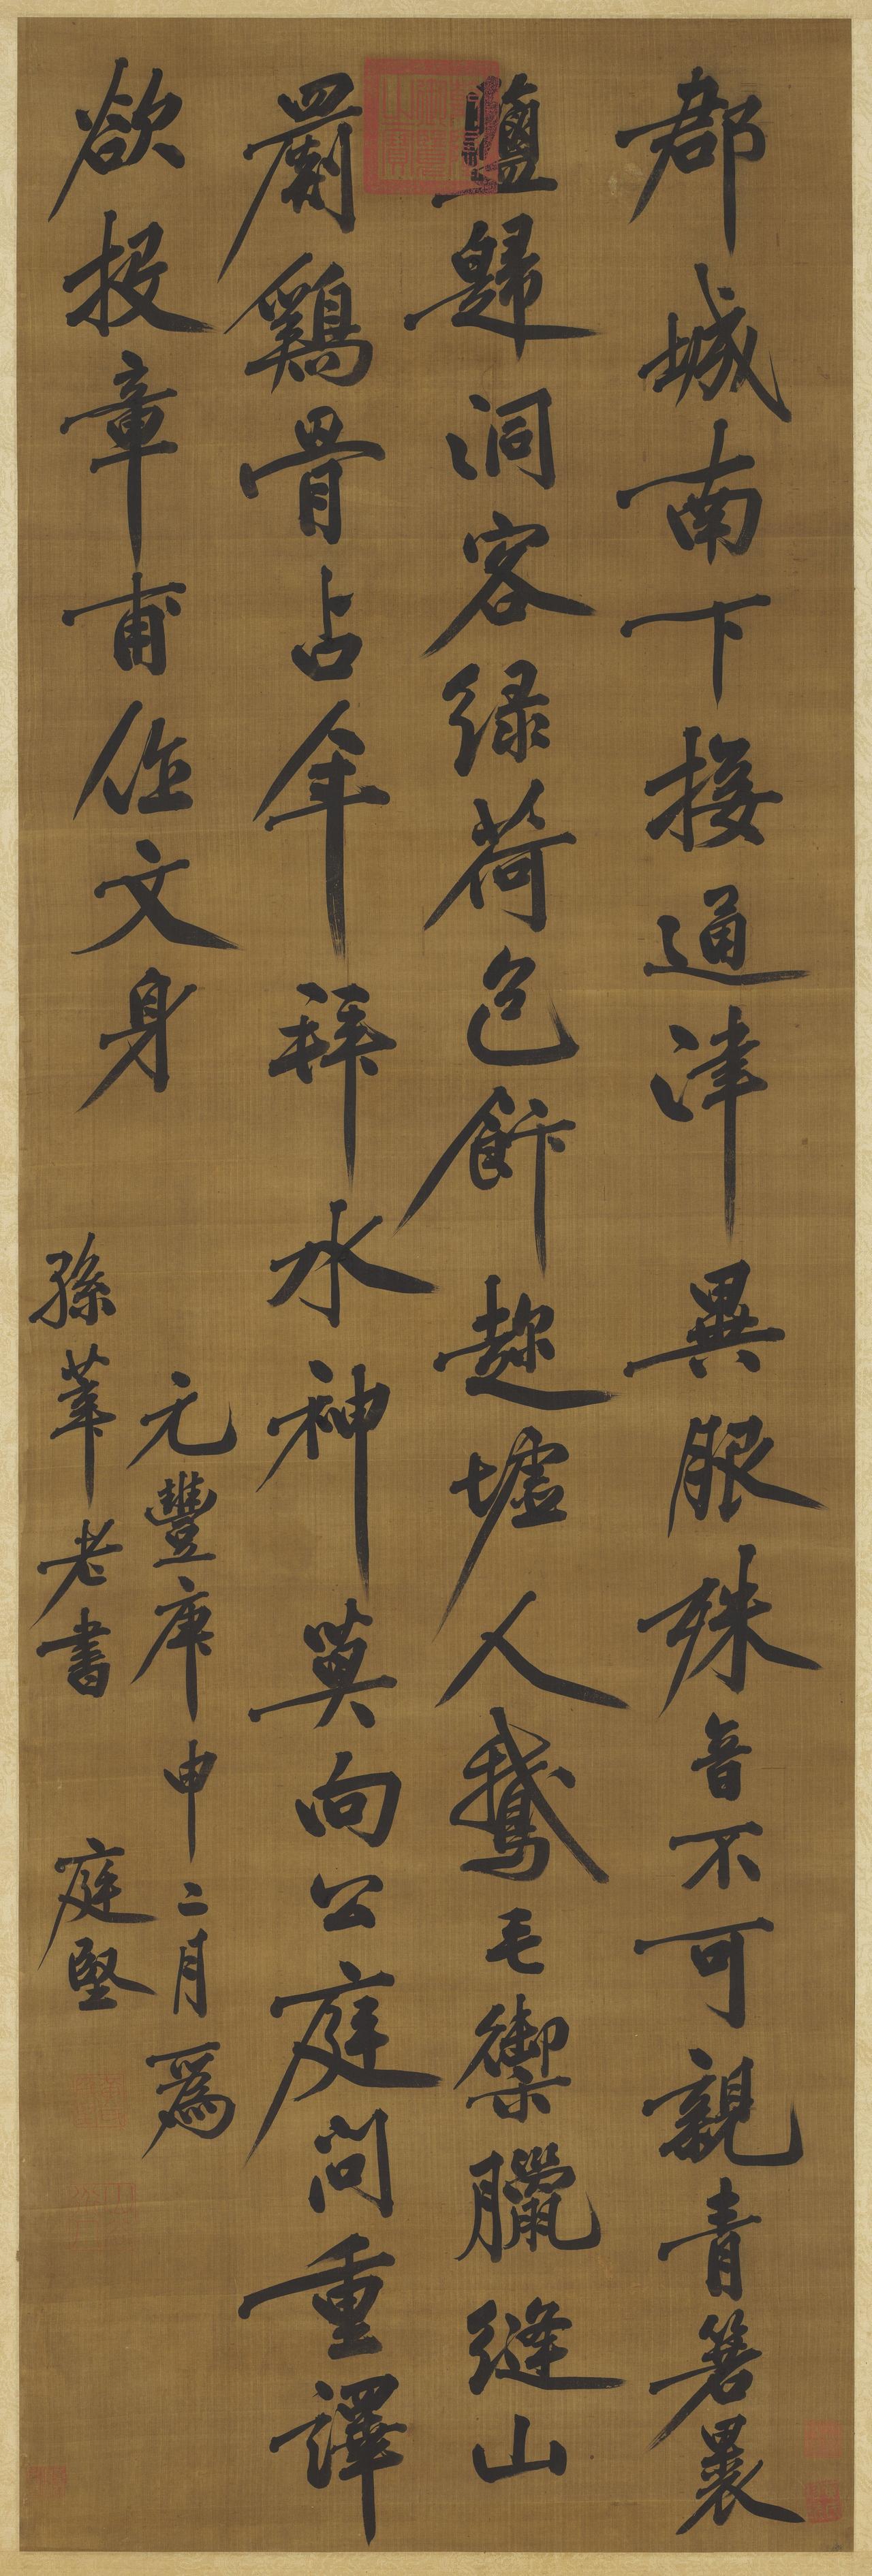 郡城南下接通津異服殊音不可親青箬裹
鹽歸洞客綠荷包飯趁墟人鵝毛御臘縫山
罽鷄骨占年拜水神莫向公庭問重譯
欲投章甫作文身
元豐庚申二月為
孫莘老書 庭堅